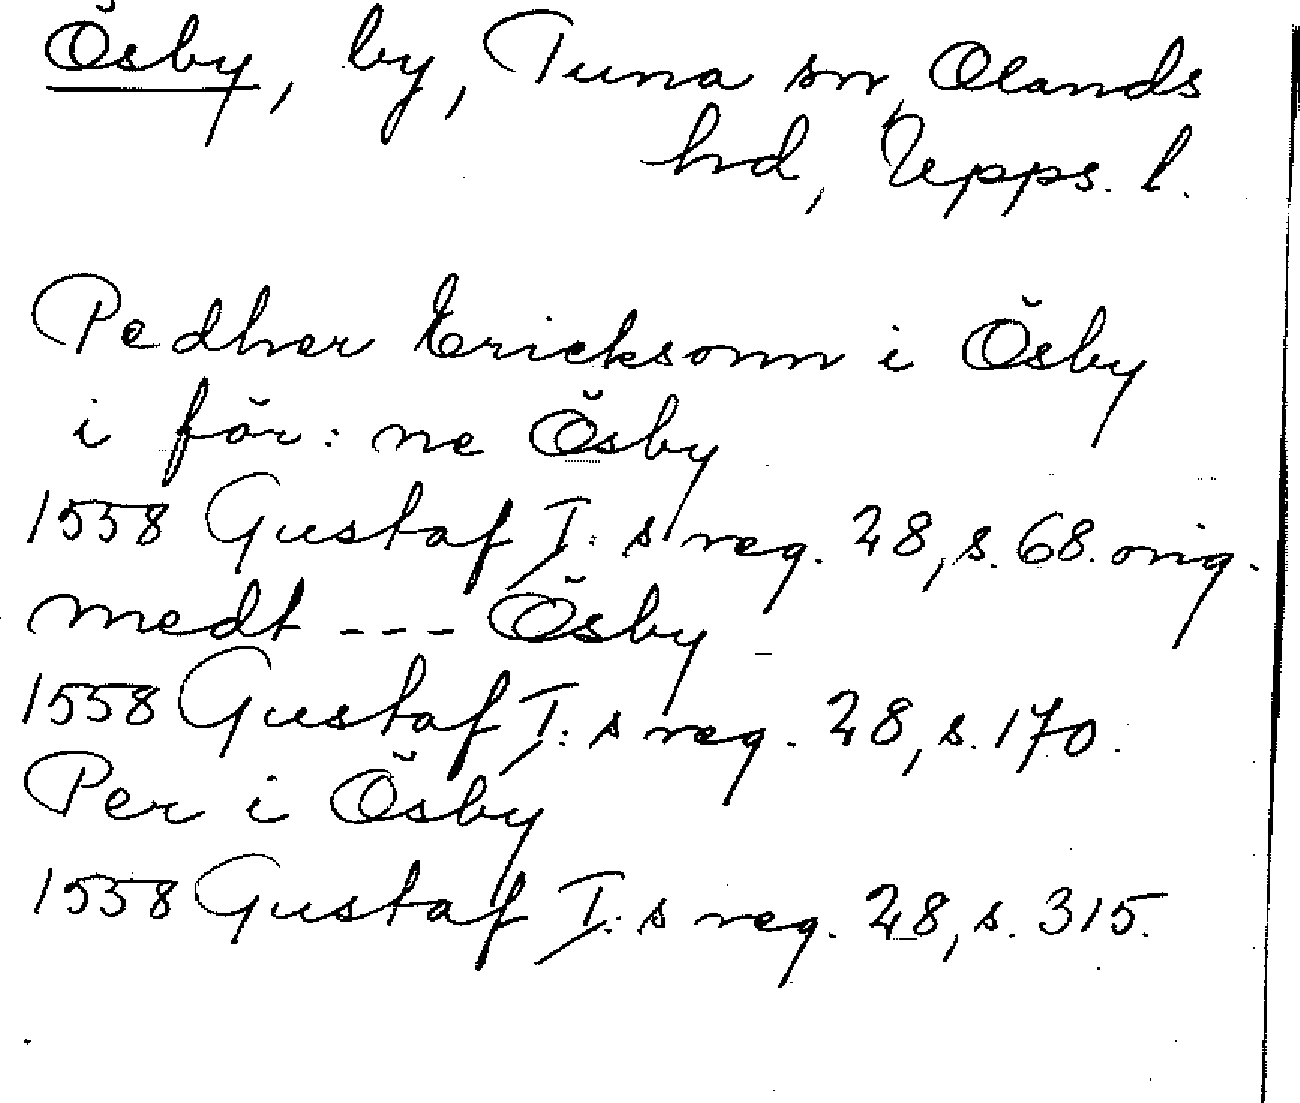 Ösby, by, Tuna sn, Olands
hd, Upps. l.
Pedher Ericksonn i Ösby
i för: ne Ösby
1558 Gustaf I: s reg. 28, s. 68. orig.
medt --- Ösby
1558 Gustaf I: s reg. 28, s. 170.
Per i Ösby
1558 Gustaf I: s reg. 28, s. 315.